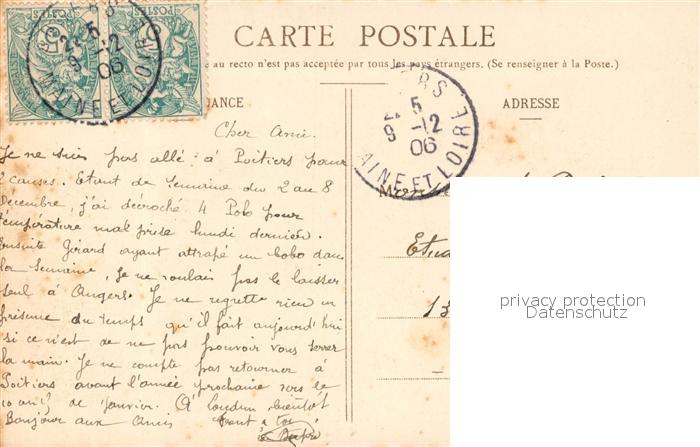 CARTE POSTALE
au recto n'est pas acceptée par tous les pays étrangers. (Se renseigner à la Poste.)
DANCE
ADRESSE
5
9 -12
06
MAINE ET LOIRE
ERS
5
9 -12
06
AINE ET LOIRE
Cher Ami.
Je ne suis pas allé à Poitiers pour
2 causes. Etant de Semaine du 2 au 8
Décembre, j'ai décroché 4 Polo pour
température mal prise lundi dernier.
Ensuite Girard ayant attrapé un bobo dans
la Semaine, Je ne voulais pas le laisser
seul à Angers. Je ne regrette rien en
présence du temps qu'il fait aujourd'hui
si ce n'est de ne pas pouvoir vous serrer
la main. Je ne compte pas retourner à
Poitiers avant l'année prochaine vers le
10 de Janvier. A Loudun bientôt
Bonjour aux Amis Tout à toi
Etud
13
privacy protection
Datenschutz